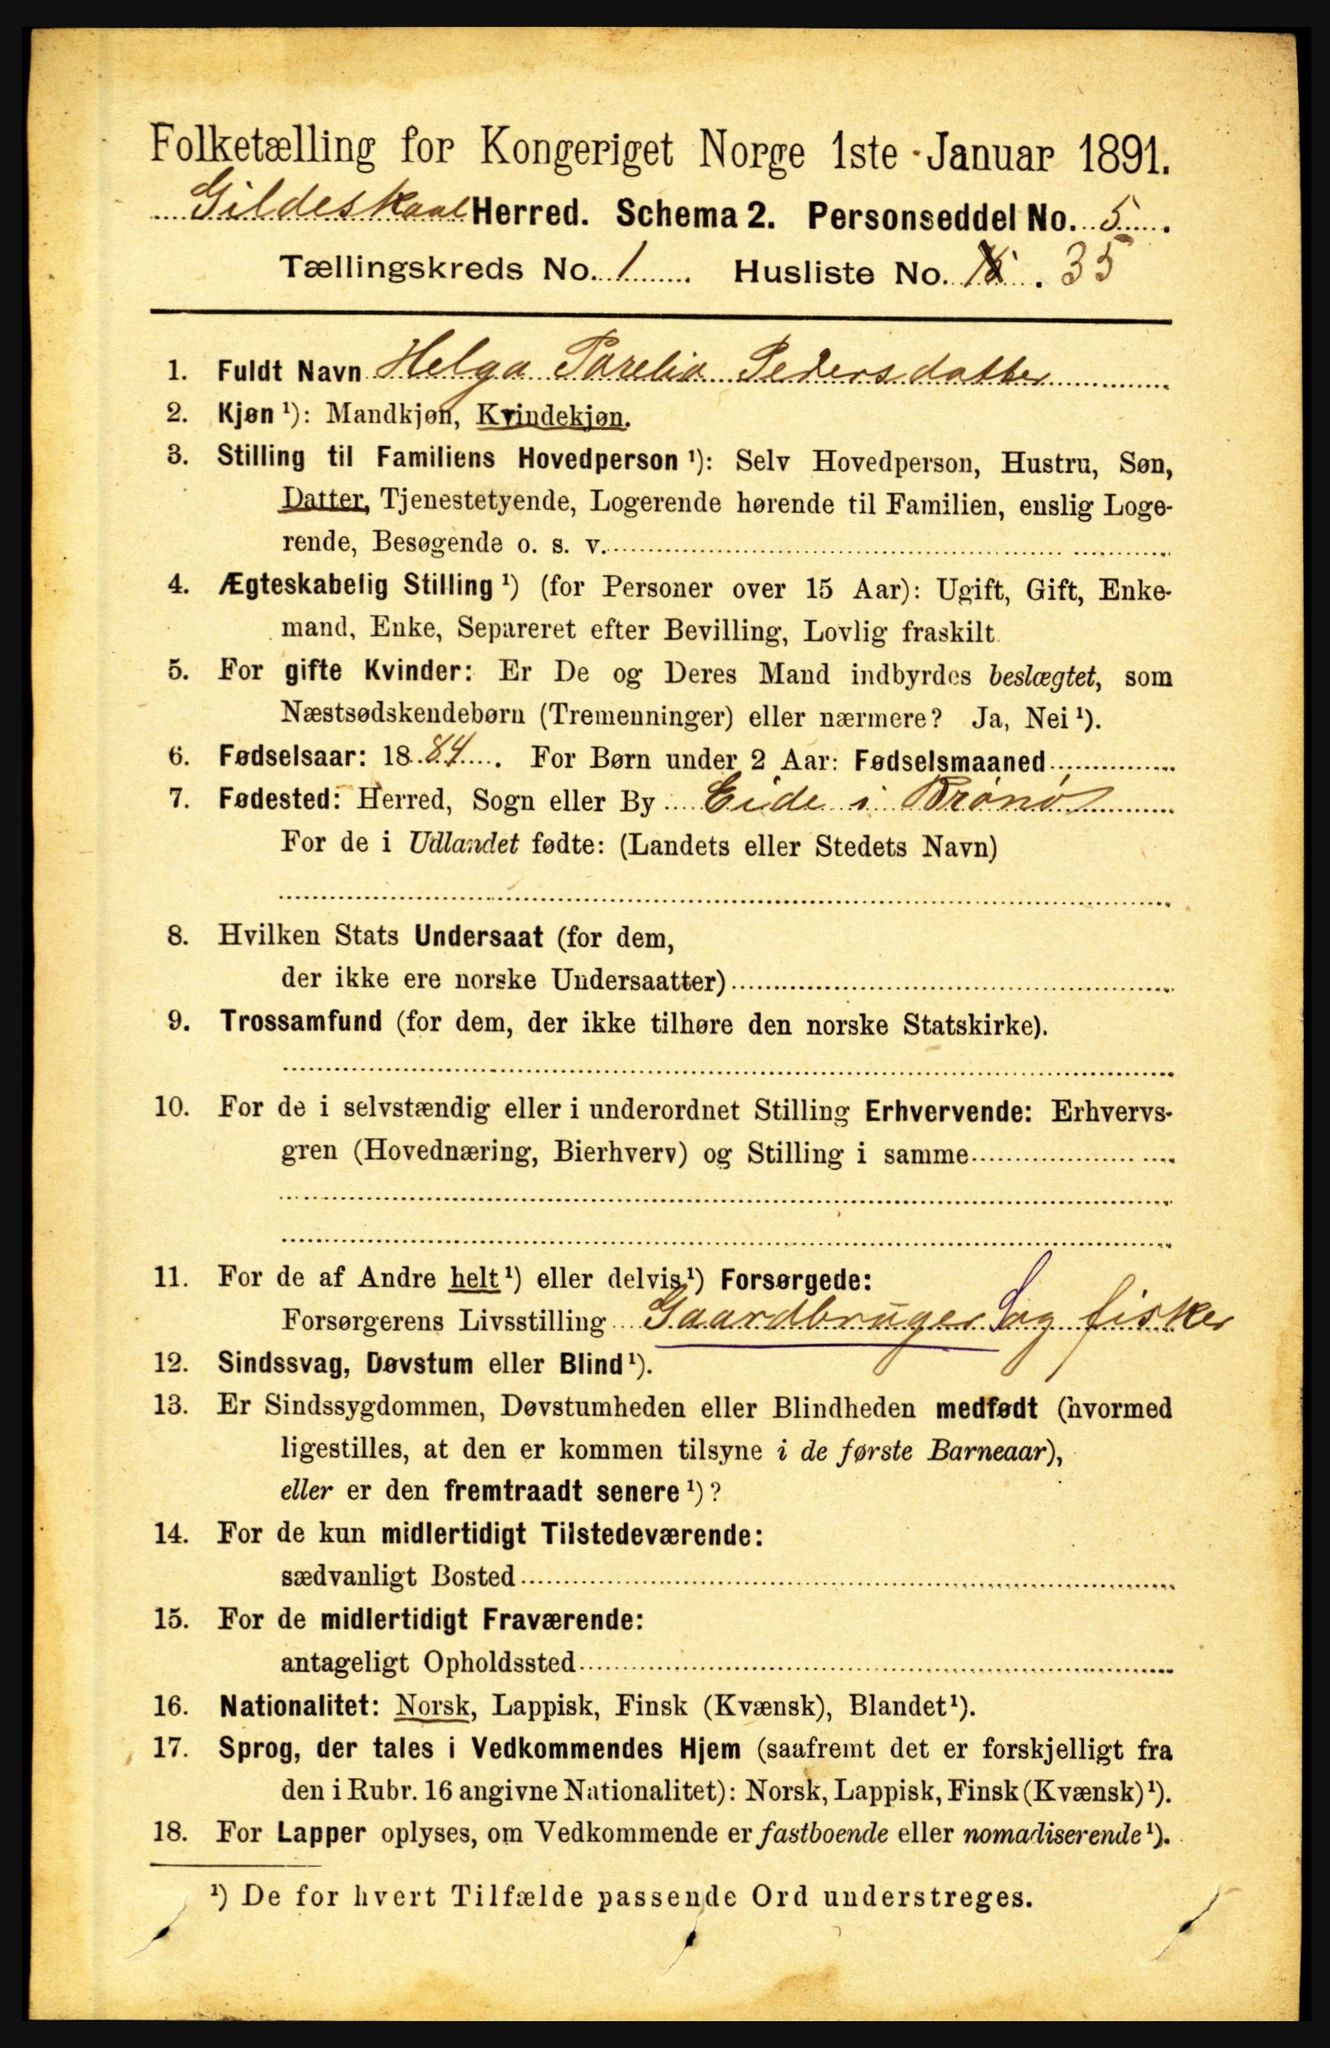 Folketælling for Kongeriget Norge 1ste Januar 1891.
Gildeskaal Herred. Schema 2. Personseddel No. 5.
Tællingskreds No. 1 Husliste No. . 35
1. Fuldt Navn Helga Parelia Pedersdatter
2. Kjøn ¹): Mandkjøn, Kvindekjøn.
3. Stilling til Familiens Hovedperson ¹): Selv Hovedperson, Hustru, Søn,
Datter, Tjenestetyende, Logerende hørende til Familien, enslig Loge-
rende, Besøgende o. s. v.
4. Ægteskabelig Stilling ¹) (for Personer over 15 Aar): Ugift, Gift, Enke-
mand, Enke, Separeret efter Bevilling, Lovlig fraskilt
5. For gifte Kvinder: Er De og Deres Mand indbyrdes beslægtet, som
Næstsødskendebørn (Tremenninger) eller nærmere? Ja, Nei ¹).
6. Fødselsaar: 1884. For Børn under 2 Aar: Fødselsmaaned
7. Fødested: Herred, Sogn eller By Eide i Brønø
For de i Udlandet fødte: (Landets eller Stedets Navn)
8. Hvilken Stats Undersaat (for dem,
der ikke ere norske Undersaatter)
9. Trossamfund (for dem, der ikke tilhøre den norske Statskirke).
10. For de i selvstændig eller i underordnet Stilling Erhvervende: Erhvervs-
gren (Hovednæring, Bierhverv) og Stilling i samme
11. For de af Andre helt ¹) eller delvis ¹) Forsørgede:
Forsørgerens Livsstilling Gaardbruger og fisker
12. Sindssvag, Døvstum eller Blind ¹).
13. Er Sindssygdommen, Døvstumheden eller Blindheden medfødt (hvormed
ligestilles, at den er kommen tilsyne i de første Barneaar),
eller er den fremtraadt senere ¹)?
14. For de kun midlertidigt Tilstedeværende:
sædvanligt Bosted
15. For de midlertidigt Fraværende:
antageligt Opholdssted
16. Nationalitet: Norsk, Lappisk, Finsk (Kvænsk), Blandet ¹).
17. Sprog, der tales i Vedkommendes Hjem (saafremt det er forskjelligt fra
den i Rubr. 16 angivne Nationalitet): Norsk, Lappisk, Finsk (Kvænsk) ¹).
18. For Lapper oplyses, om Vedkommende er fastboende eller nomadiserende ¹).
¹) De for hvert Tilfælde passende Ord understreges.